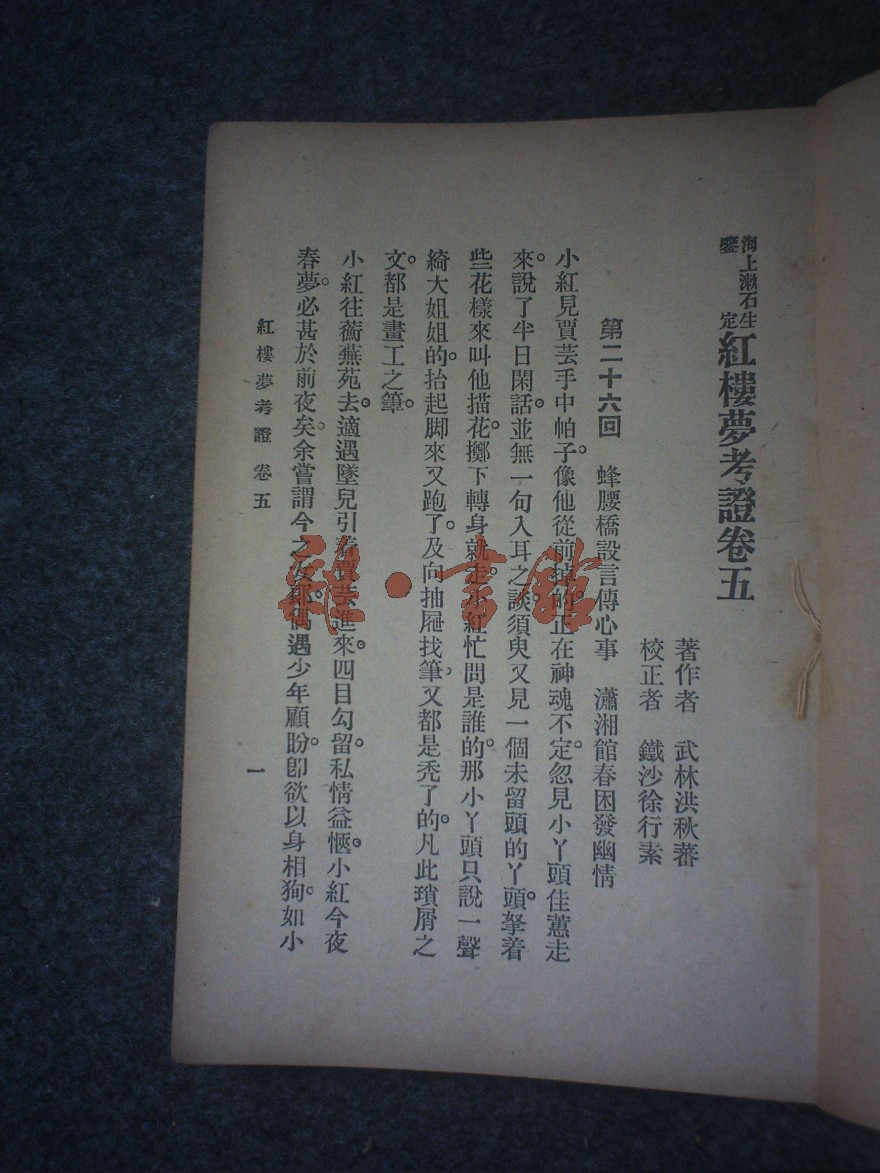 海上漱石生鑒定
紅樓夢考證卷五
著作者 武林洪秋蕃
校正者 鐵沙徐行素
第二十六回 蜂腰橋設言傳心事 瀟湘館春困發幽情
小紅見賈芸手中帕子。像他從前掉的。正在神魂不定。忽見小丫頭佳蕙走
來。說了半日閑話。並無一句入耳之談。須臾又見一個未留頭的丫頭。拏着
些花樣來叫他描花。擲下轉身就走。小紅忙問是誰的。那小丫頭只說一聲
綺大姐姐的。抬起脚來又跑了。及向抽屜找筆。又都是禿了的。凡此瑣屑之
文。都是畫工之筆。
小紅往蘅蕪苑去。適遇墜兒引着賈芸進來。四目勾留。私情益愜。小紅今夜
春夢。必甚於前夜矣。余嘗謂今之女郎。偶遇少年顧盼。卽欲以身相狥。如小
紅樓夢考證 卷五
一
雜·書館